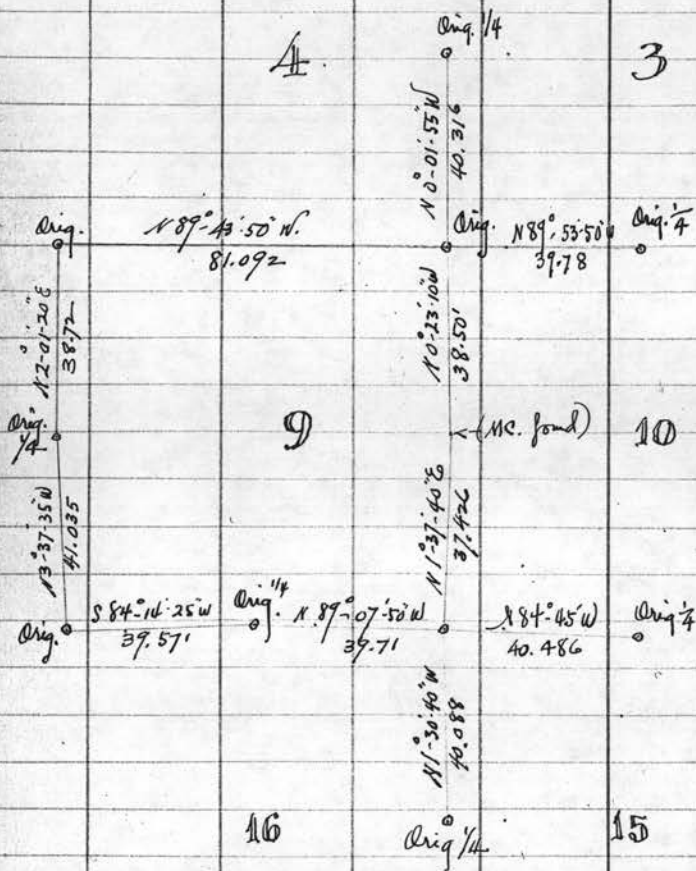 Orig. 1/4
4.
3
N 0°-01'-55"W
40.316
Orig.
N 89°-43'-50" W.
81.092
Orig.
N 89°-53'-50"W
39.78
Orig. 1/4
N 2°-01'-20"E
38.72
N 0°-23'-10"W
38.50'
Orig. 1/4
9
(MC. found)
10
N 3°-37'-35"W
41.035
N 1°-37'-40"E
37.426
Orig.
S 84°-14'-25"W
39.571
Orig. 1/4
N 89°-07'-50"W
39.71
N 84°-45'W
40.486
Orig 1/4
N 1°-30'-40"W
40.088
16
Orig 1/4
15